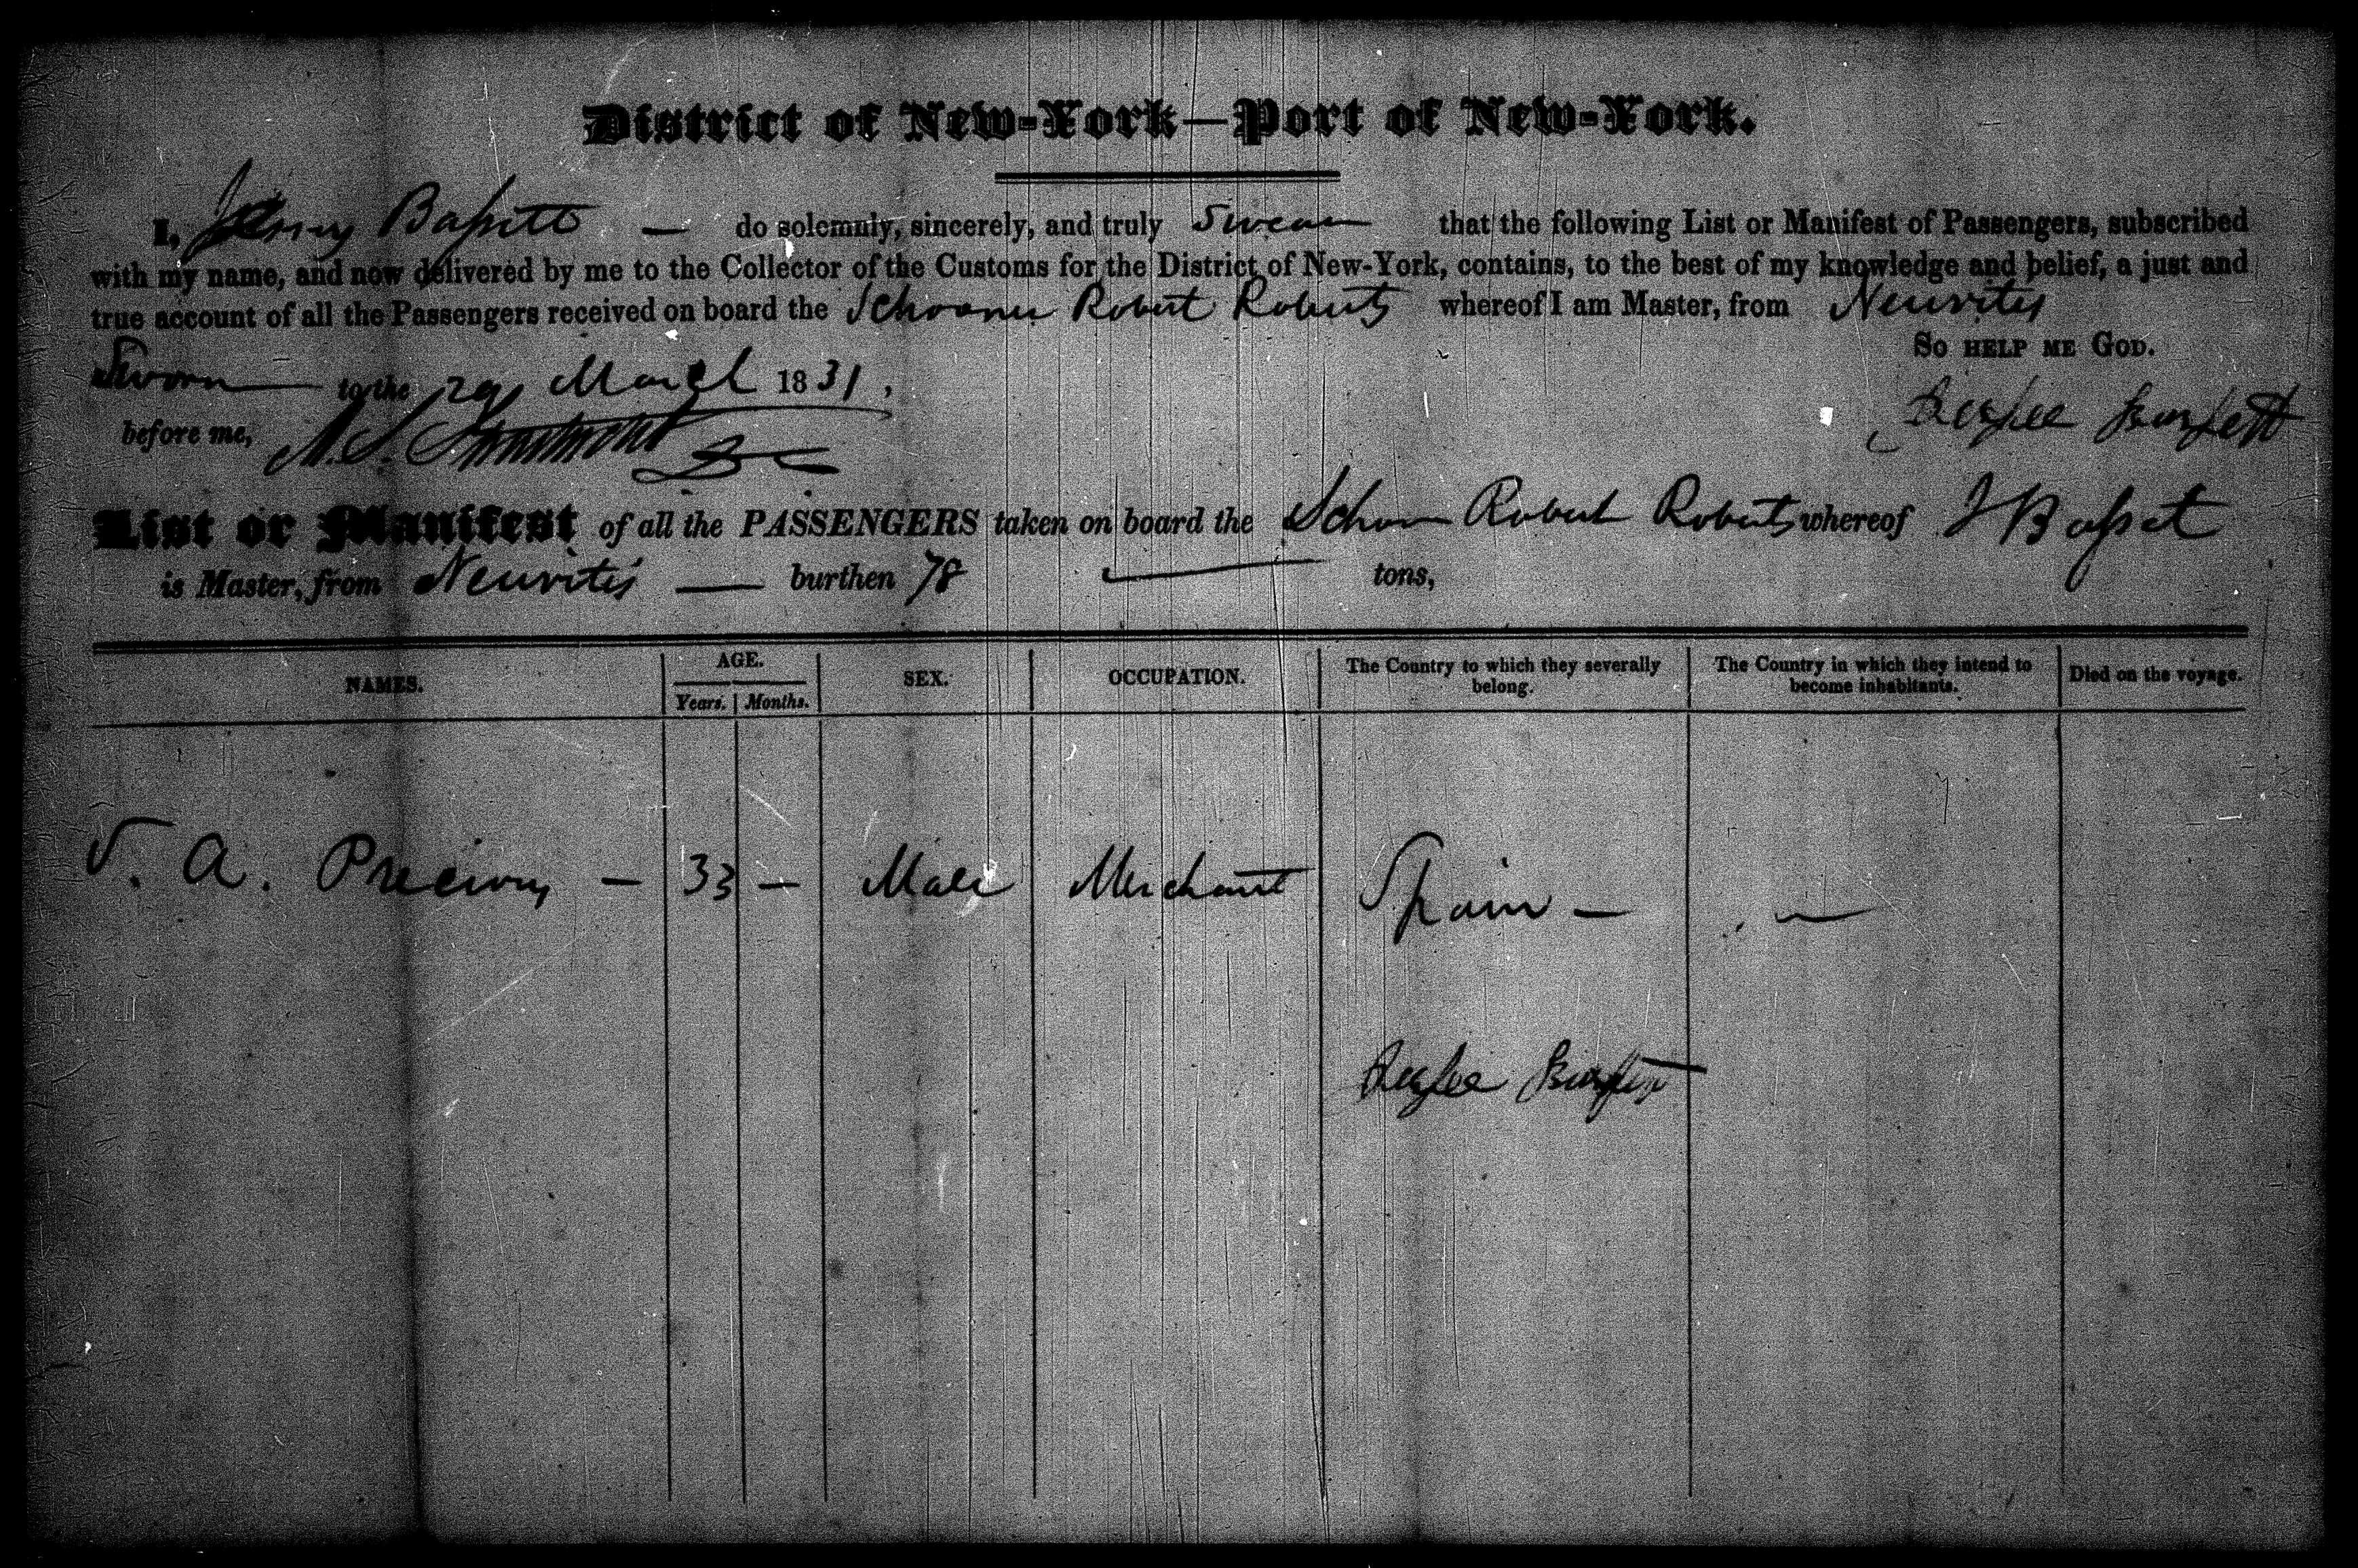 District of New-York—Port of New-York.
I, Bassett — do solemnly, sincerely, and truly Swear that the following List or Manifest of Passengers, subscribed
with my name, and now delivered by me to the Collector of the Customs for the District of New-York, contains, to the best of my knowledge and belief, a just and
true account of all the Passengers received on board the Schooner Robert Roberts whereof I am Master, from Neuvites
So help me God.
Sworn to the 29 March 1831.
before me,
List or Manifest of all the PASSENGERS taken on board the Schoon Robert Roberts whereof J Basset
is Master, from Neuvites — burthen 78 — tons,
NAMES. AGE. SEX. OCCUPATION. The Country to which they severally belong. The Country in which they intend to become inhabitants. Died on the voyage.
Years. Months.
J. A. — 33 — Male Merchant Spain — —